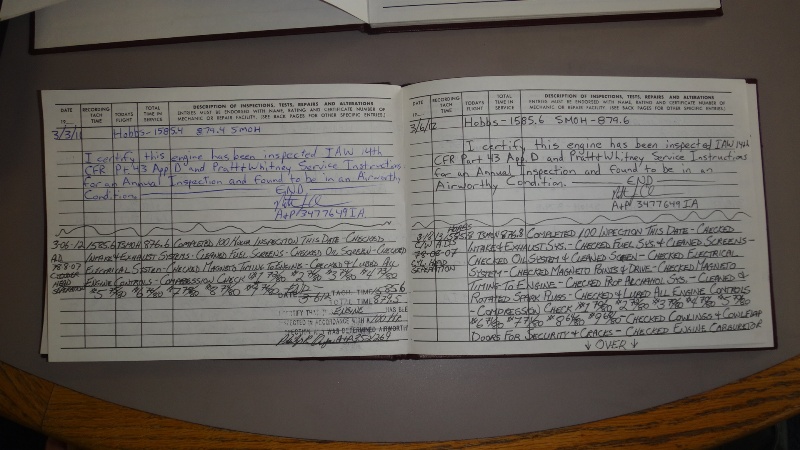 DATE
RECORDING TACH TIME
TODAYS FLIGHT
TOTAL TIME IN SERVICE
DESCRIPTION OF INSPECTIONS, TESTS, REPAIRS AND ALTERATIONS
ENTRIES MUST BE ENDORSED WITH NAME, RATING AND CERTIFICATE NUMBER OF
MECHANIC OR REPAIR FACILITY. (SEE BACK PAGES FOR OTHER SPECIFIC ENTRIES.)
3/3/11 Hobbs-1585.4 879.4 SMOH
I certify this engine has been inspected IAW 14th
CFR Pt. 43 App D and Pratt+Whitney Service Instructions
for an Annual Inspection and found to be in an Airworthy
Condition. END
A+P 3477649 IA
3-06-12 1585.6 TSMOH 876.6 COMPLETED 100 HOUR INSPECTION THIS DATE - CHECKED
AD INTAKE & EXHAUST SYSTEMS - CLEANED FUEL SCREENS - CHECKED OIL SCREEN - CHECKED
78-8-07 ELECTRICAL SYSTEM - CHECKED MAGNETO TIMING TO ENGINE - CHECKED & LUBED ALL
CYLINDER HEAD SEPARATION ENGINE CONTROLS - COMPRESSION CHECK
DATE 3-6-12 TACH. TIME 1585.6
TOTAL TIME
I CERTIFY THAT THIS ENGINE HAS BEEN
INSPECTED IN ACCORDANCE WITH A 100 HR.
INSPECTION AND WAS DETERMINED AIRWORTHY
DATE
RECORDING TACH TIME
TODAYS FLIGHT
TOTAL TIME IN SERVICE
DESCRIPTION OF INSPECTIONS, TESTS, REPAIRS AND ALTERATIONS
ENTRIES MUST BE ENDORSED WITH NAME, RATING AND CERTIFICATE NUMBER OF
MECHANIC OR REPAIR FACILITY. (SEE BACK PAGES FOR OTHER SPECIFIC ENTRIES.)
3/6/12 Hobbs-1585.6 SMOH-879.6
I certify this engine has been inspected IAW 14th
CFR Part 43 App. D and Pratt+Whitney Service Instructions
for an Annual Inspection and found to be in an
Airworthy Condition. END
A+P 3477649 IA
HOBBS
TSMOH 876.8 COMPLETED 100 INSPECTION THIS DATE - CHECKED
C/W ADS INTAKE & EXHAUST SYS. - CHECKED FUEL SYS. & CLEANED SCREENS -
78-08-07 CHECKED OIL SYSTEM & CLEANED SCREEN - CHECKED ELECTRICAL
CYL HEAD SEPARATION SYSTEM - CHECKED MAGNETO POINTS & DRIVE - CHECKED MAGNETO
TIMING TO ENGINE - CHECKED PROP ALCOHOL SYS. - CLEANED &
ROTATED SPARK PLUGS - CHECKED & LUBED ALL ENGINE CONTROLS
- COMPRESSION CHECK
CHECKED COWLINGS & COWLFLAP
DOORS FOR SECURITY & CRACKS - CHECKED ENGINE CARBURETOR
↓ OVER ↓